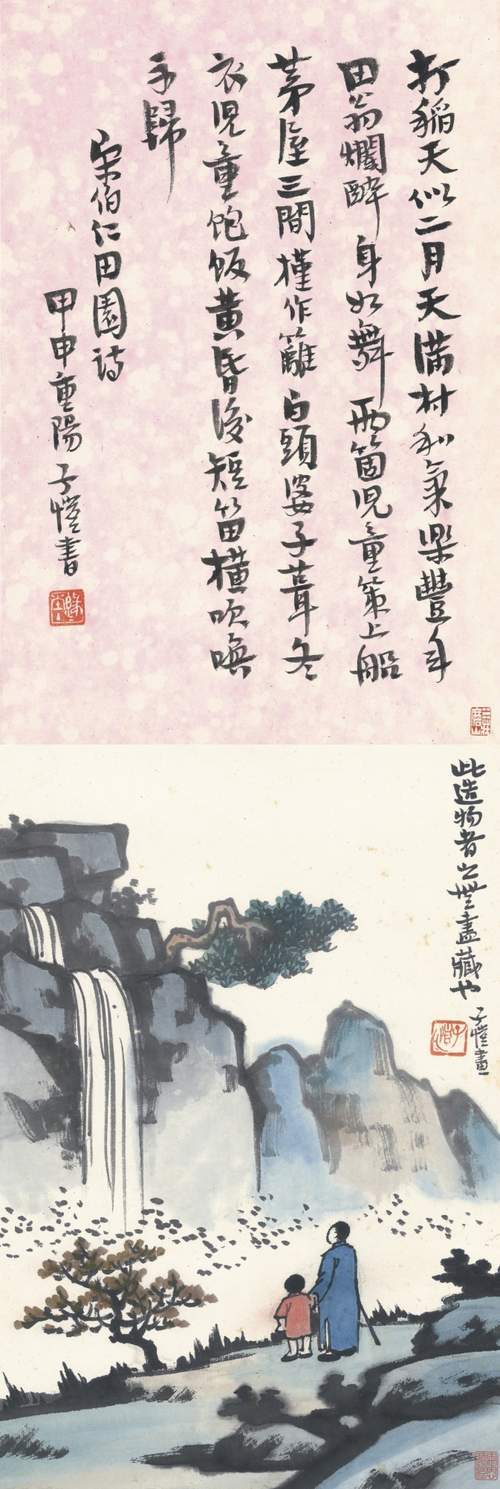 打稻天似二月天滿村和氣樂豐年
田翁爛醉身如舞兩箇兒童策上船
茅屋三間槿作籬白頭婆子葺冬
衣兒童飽飯黃昏後短笛橫吹喚
牛歸
宋伯仁田園詩
甲申重陽 子愷書
此造物者之無盡藏也
子愷畫